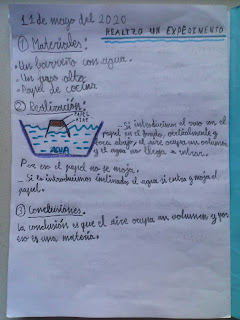 11 de mayo del 2020
REALIZO UN EXPERIMENTO
① Materiales:
·Un barreño con agua.
·Un vaso alto
·Papel de cocina
② Realización:
PAPEL
AIRE
AGUA
- Si introducimos el vaso con el
papel en el fondo, verticalmente y
boca abajo, el aire ocupa un volumen
y el agua no llega a entrar.
Por eso el papel no se moja.
- Si lo introducimos inclinados el agua si entra y moja el
papel.
③ Conclusiones:
La conclusión es que el aire ocupa un volumen y por
eso es una materia.